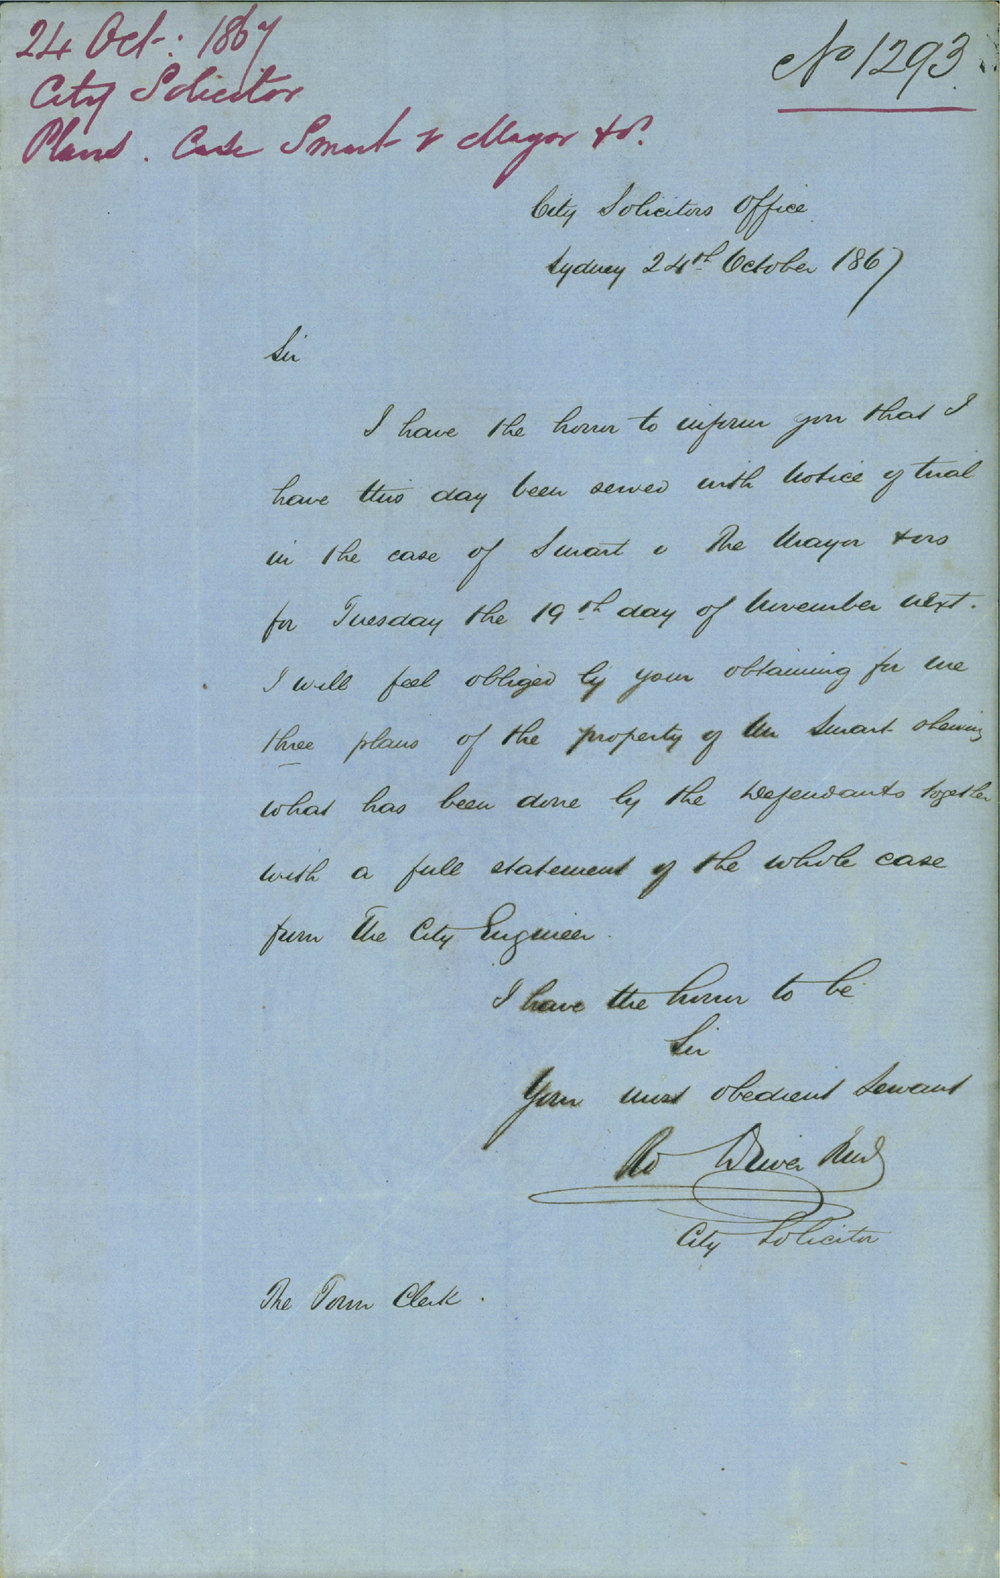 24 Oct: 1867
City Solicitor
Plans. Case Smart v Mayor &c.
No 1293
City Solicitors Office
Sydney 24th October 1867
Sir
I have the honor to inform you that I
have this day been served with Notice of trial
in the case of Smart v The Mayor & ors
for Tuesday the 19th day of November next.
I will feel obliged by your obtaining for me
three plans of the property of Mr Smart shewing
what has been done by the Defendants together
with a full statement of the whole case
from the City Engineer.
I have the honor to be
Sir
Your most obedient servant
Rd Driver Junr
City Solicitor
The Town Clerk.